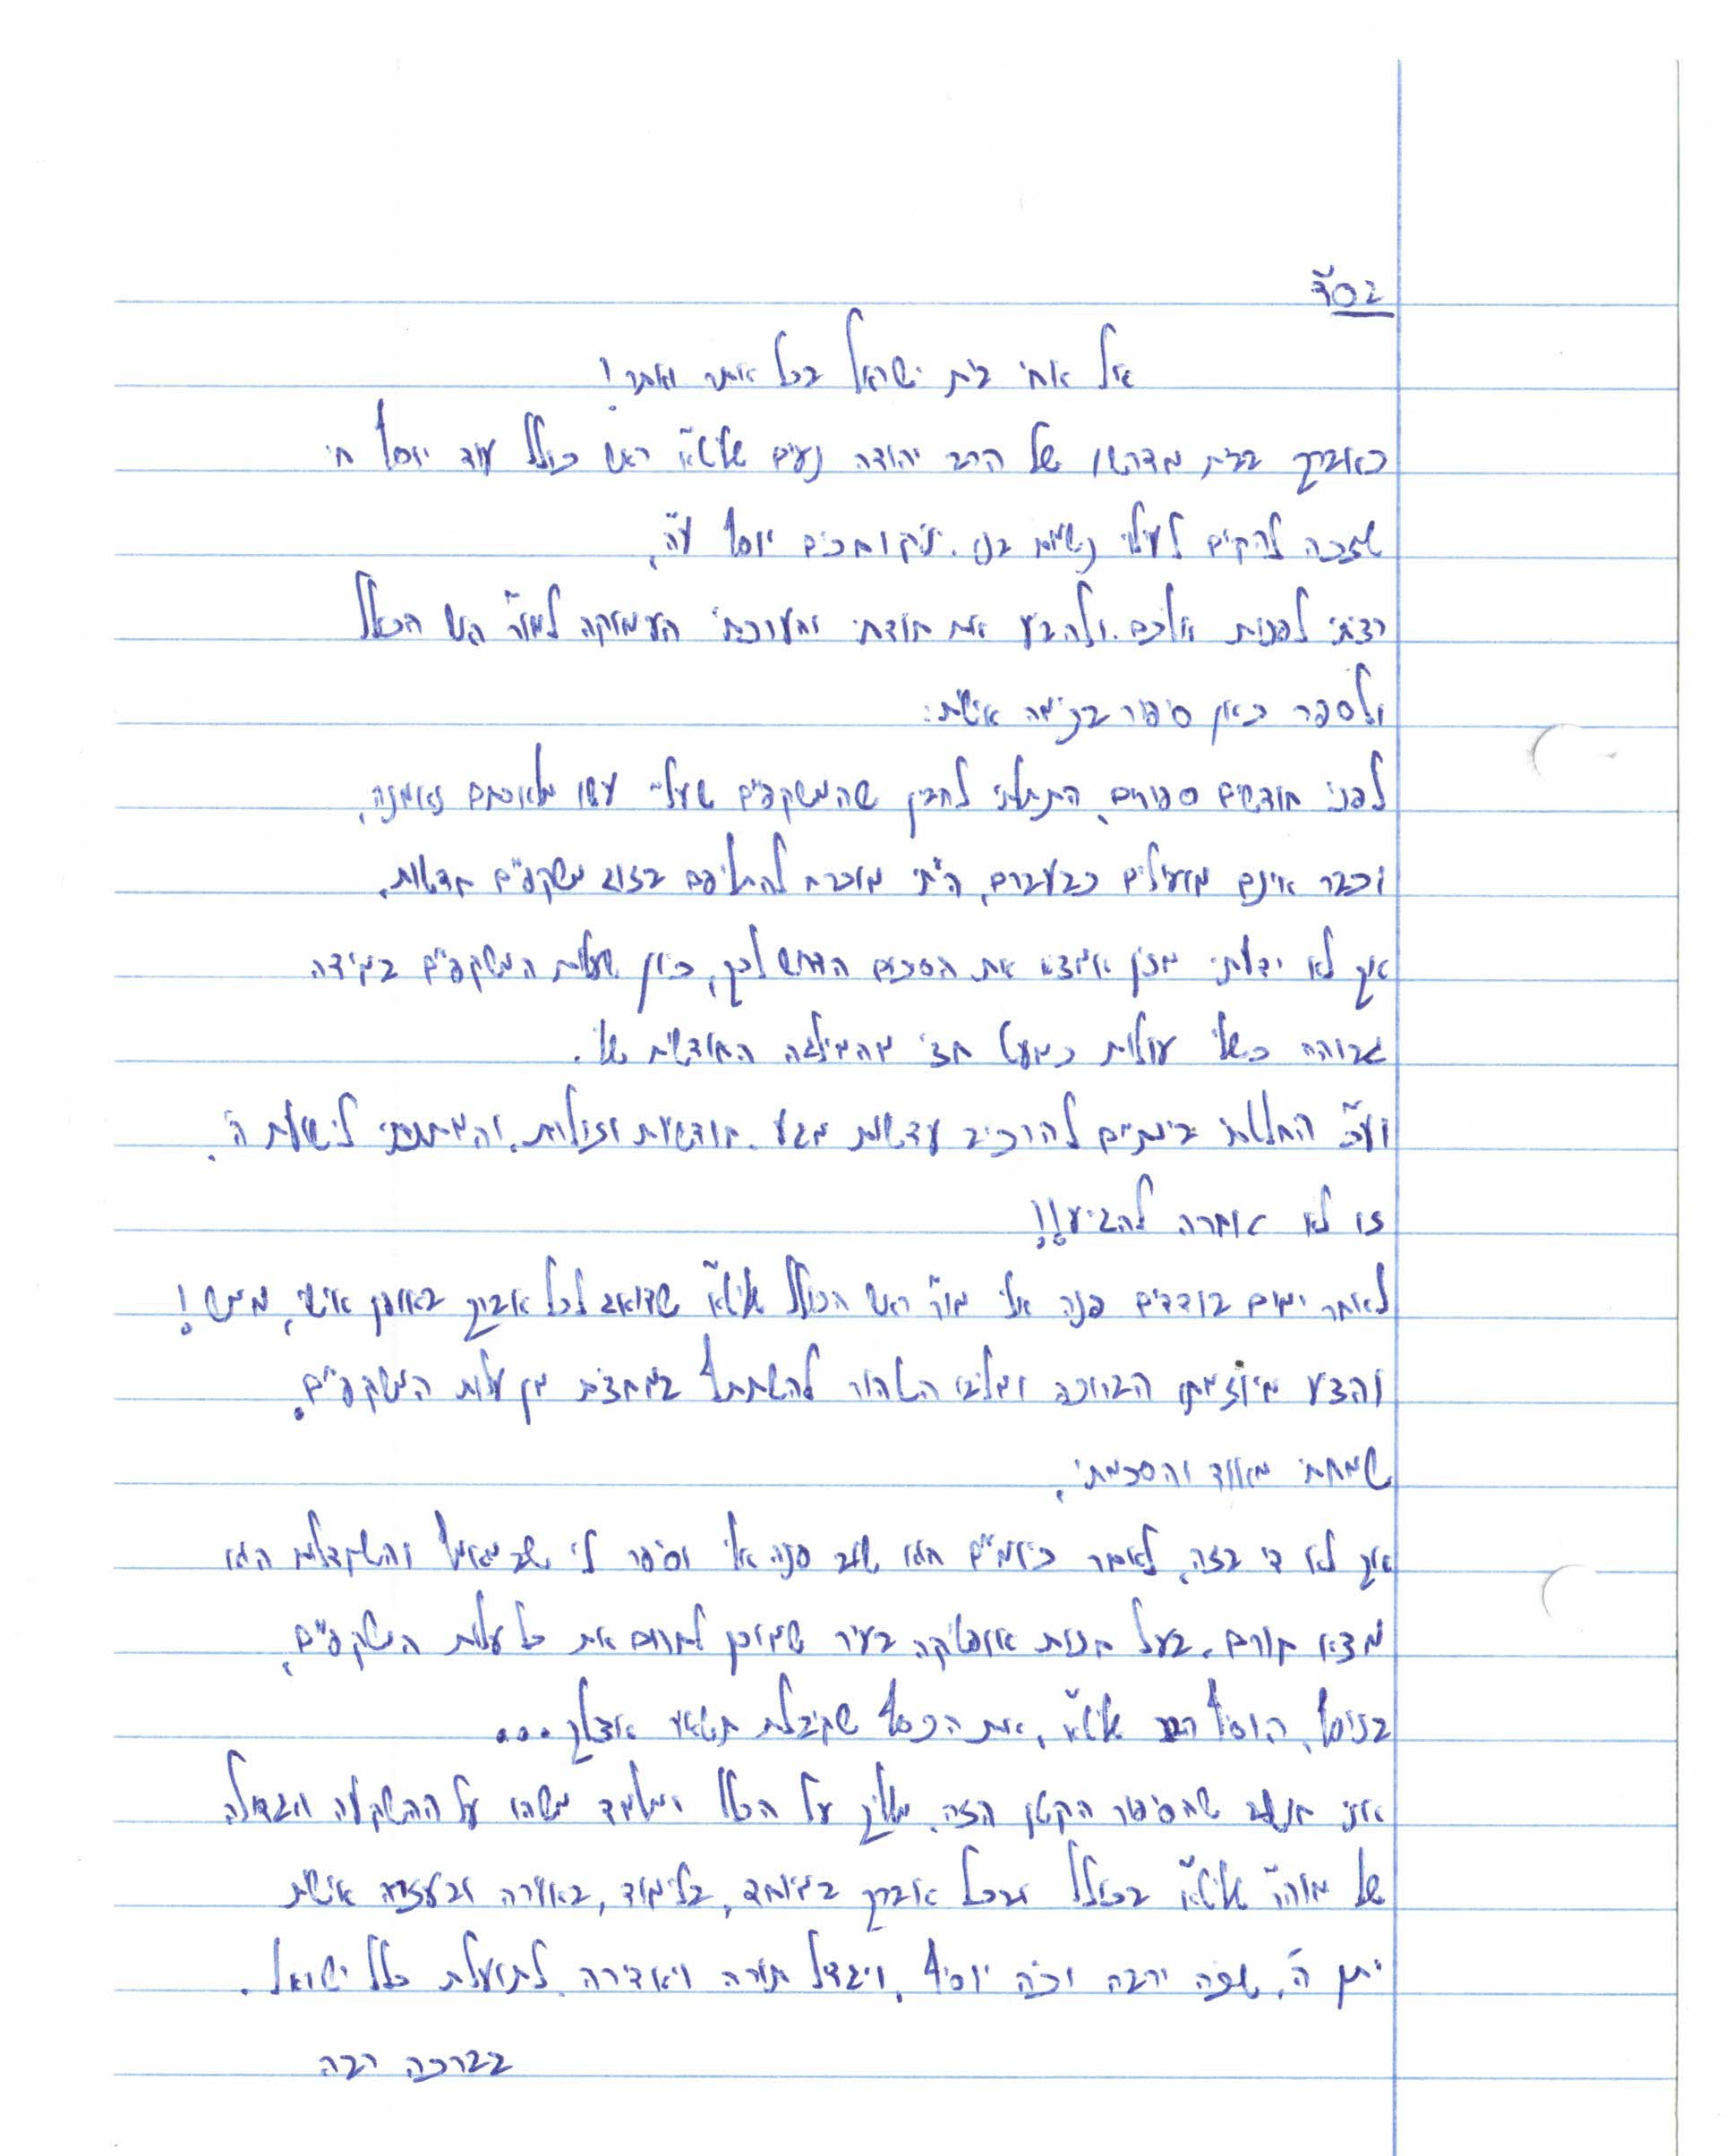 בס"ד
אל אחי בית ישראל בכל אתר ואתר!
כאברך בבית מדרשו של הרב יהודה נעים שליט"א ראש כולל עוד יוסף חי
שזכה להקים לעילוי נשמת בנו. ינוק וחכים יוסף ע"ה,
רציתי לפנות אליכם. ולהביע את תודתי והערכתי העמוקה למו"ר ראש הכולל
ולספר כאן סיפור בנימה אישית:
לפני חודשים ספורים, התחלתי להבין שהמשקפיים שעליי עשו מלאכתם נאמנה,
וכבר אינם מועילים כבעברם, הייתי מוכרח להחליפם בזוג משקפיים חדשות,
אך לא ידעתי מנין אמצא את הסכום הדרוש לכך, כיון שעלות המשקפיים במידה
גבוהה כשלי עולות כמעט חצי מהמילגה החודשית שלי.
וע"כ החלטתי בינתיים להרכיב עדשות מגע. חודשיות וזולות. והמתנתי לישועת ה'.
זו לא איחרה להגיע!!
לאחר ימים בודדים פנה אלי מו"ר ראש הכולל שליט"א שדואג לכל אברך באופן אישי, ממש!
והציע מיוזמתו הברוכה ומליבו הטהור להשתתף במחצית מן עלות המשקפיים.
שמחתי מאוד והסכמתי,
אך לא די בזה, לאחר כיומיים הוא שוב פנה אלי וסיפר לי שב והשתדלות הוא
מצא תורם. בעל חנות אופטיקה בעיר שמוכן לתרום את כל עלות המשקפיים,
בנוסף, הוסיף הרב שליט"א, את הכסף שקיבלת תשאיר אצלך...
אני חושב שהסיפור הקטן הזה. מעיד על הכלל ומלמד משהו על ההשקעה הגדולה
של מוה"ר שליט"א בכולל ובכל אברך במיוחד, בלימוד, באוירה ובעזרה אישית
יתן ה'. שכה ירבה וכה יוסיף, ויגדיל תורה ויאדירה לתועלת כלל ישראל.
בברכה רבה